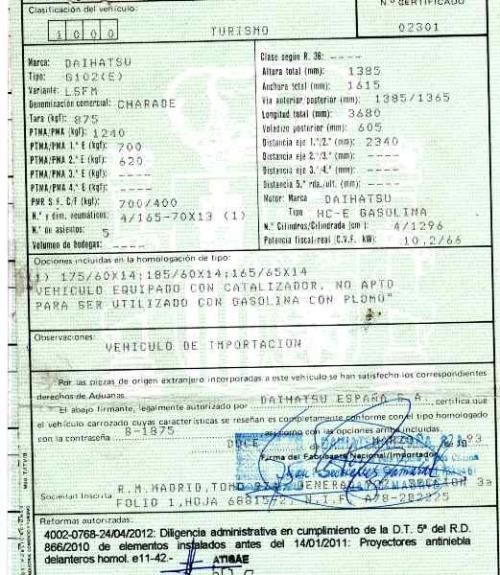 Clasificación del vehículo:
N.º CERTIFICADO
1 0 0 0
TURISMO
02301
Marca: DAIHATSU
Tipo: G102(E)
Variante: LSFM
Denominación comercial: CHARADE
Tara (kgf): 875
PTMA/PMA (kg): 1240
PTMA/PMA 1.º E (kgf): 700
PTMA/PMA 2.º E (kgf): 620
PTMA/PMA 3.º E (kgf): ----
PTMA/PMA 4.º E (kgf): ----
PMR S.F. C/F (kgf): 700/400
N.º y dim. neumáticos: 4/165-70X13 (1)
N.º de asientos: 5
Volumen de bodegas: ----
Clase según R. 36: ----
Altura total (mm): 1385
Anchura total (mm): 1615
Vía anterior/posterior (mm): 1385/1365
Longitud total (mm): 3680
Voladizo posterior (mm): 605
Distancia eje 1.º/2.º (mm): 2340
Distancia eje 2.º/3.º (mm): ----
Distancia eje 3.º/4.º (mm): ----
Distancia 5.ª rda./ult. (mm): ----
Motor: Marca DAIHATSU
Tipo HC-E GASOLINA
N.º Cilindros/Cilindrada (cm³): 4/1296
Potencia fiscal/real (C.V.F. kW): 10,2/66
Opciones incluidas en la homologación de tipo:
1) 175/60X14;185/60X14;165/65X14
VEHICULO EQUIPADO CON CATALIZADOR. NO APTO
PARA SER UTILIZADO CON GASOLINA CON PLOMO"
Observaciones:
VEHICULO DE IMPORTACION
Por las piezas de origen extranjero incorporadas a este vehículo se han satisfecho los correspondientes
derechos de Aduanas.
El abajo firmante, legalmente autorizado por DAIHATSU ESPAÑA S.A., certifica que
el vehículo carrozado cuyas características se reseñan es completamente conforme con el tipo homologado
con la contraseña B-1875 así como con las opciones arriba incluidas.
DOCE MARZO 93
Firma del Fabricante Nacional/Importador
Sociedad Inscrita R.M.MADRID,TOMO GENERAL SECCION 3a
FOLIO 1,HOJA N.I.F. A78-202225
Reformas autorizadas:
4002-0768-24/04/2012: Diligencia administrativa en cumplimiento de la D.T. 5ª del R.D.
866/2010 de elementos instalados antes del 14/01/2011: Proyectores antiniebla
delanteros homol. e11-42.-
ATISAE